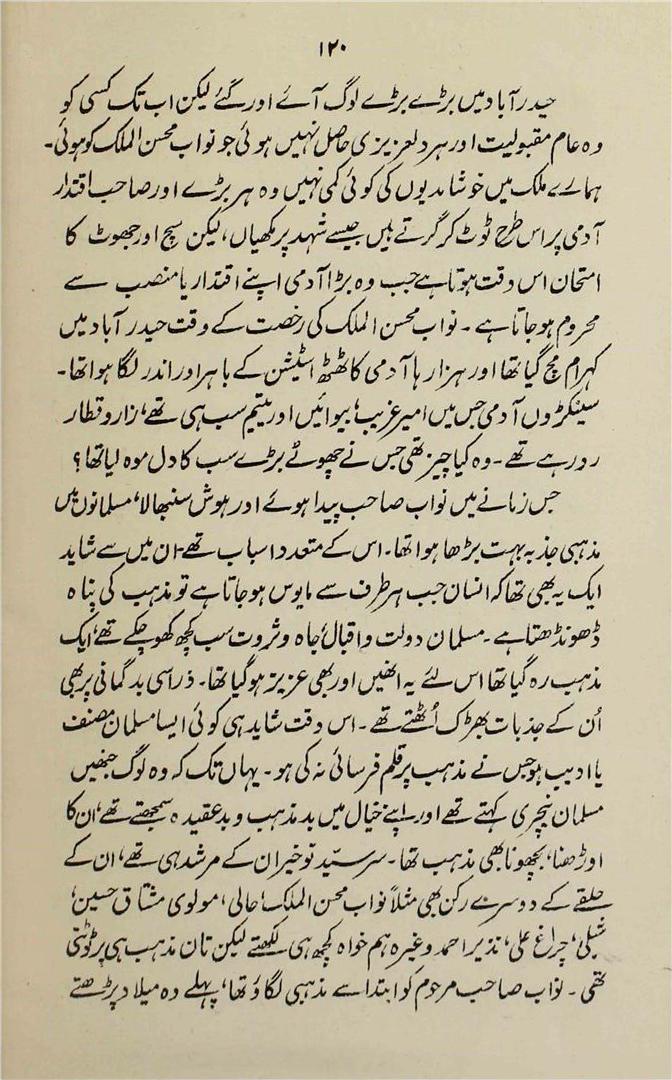 ۱۲۰
حیدرآباد میں بڑے بڑے لوگ آئے اور گئے لیکن اب تک کسی کو
وہ عام مقبولیت اور ہردلعزیزی حاصل نہیں ہوئی جو نواب محسن الملک کو ہوئی۔
ہمارے ملک میں خوشامدیوں کی کوئی کمی نہیں وہ ہر بڑے اور صاحب اقتدار
آدمی پر اس طرح ٹوٹ کر گرتے ہیں جیسے شہد پر مکھیاں، لیکن سچ اور جھوٹ کا
امتحان اس وقت ہوتا ہے جب وہ بڑا آدمی اپنے اقتدار یا منصب سے
محروم ہو جاتا ہے۔ نواب محسن الملک کی رخصت کے وقت حیدرآباد میں
کہرام مچ گیا تھا اور ہزارہا آدمی کا ٹھٹھ اسٹیشن کے باہر اور اندر لگا ہوا تھا۔
سینکڑوں آدمی جس میں امیر غریب، بیوائیں اور یتیم سب ہی تھے، زار و قطار
رو رہے تھے۔ وہ کیا چیز تھی جس نے چھوٹے بڑے سب کا دل موہ لیا تھا؟
جس زمانے میں نواب صاحب پیدا ہوئے اور ہوش سنبھالا، مسلمانوں میں
مذہبی جذبہ بہت بڑھا ہوا تھا۔ اس کے متعدد اسباب تھے۔ ان میں سے شاید
ایک یہ بھی تھا کہ انسان جب ہر طرف سے مایوس ہو جاتا ہے تو مذہب کی پناہ
ڈھونڈھتا ہے۔ مسلمان دولت و اقبال، جاہ و ثروت سب کچھ کھو چکے تھے، ایک
مذہب رہ گیا تھا اس لئے یہ انھیں اور بھی عزیز ہو گیا تھا۔ ذرا سی بدگمانی پر بھی
اُن کے جذبات بھڑک اُٹھتے تھے۔ اس وقت شاید ہی کوئی ایسا مسلمان مصنف
یا ادیب ہو جس نے مذہب پر قلم فرسائی نہ کی ہو۔ یہاں تک کہ وہ لوگ جنھیں
مسلمان نیچری کہتے تھے اور اپنے خیال میں بد مذہب و بد عقیدہ سمجھتے تھے، ان کا
اوڑھنا، بچھونا بھی مذہب تھا۔ سرسیّد تو خیر ان کے مرشد ہی تھے، ان کے
حلقے کے دوسرے رکن بھی مثلاً نواب محسن الملک، حالی، مولوی مشتاق حسین،
شبلی، چراغ علی، نذیر احمد وغیرہ ہم خواہ کچھ ہی لکھتے لیکن تان مذہب ہی پر ٹوٹتی
تھی۔ نواب صاحب مرحوم کو ابتدا سے مذہبی لگاؤ تھا، پہلے وہ میلاد پڑھتے